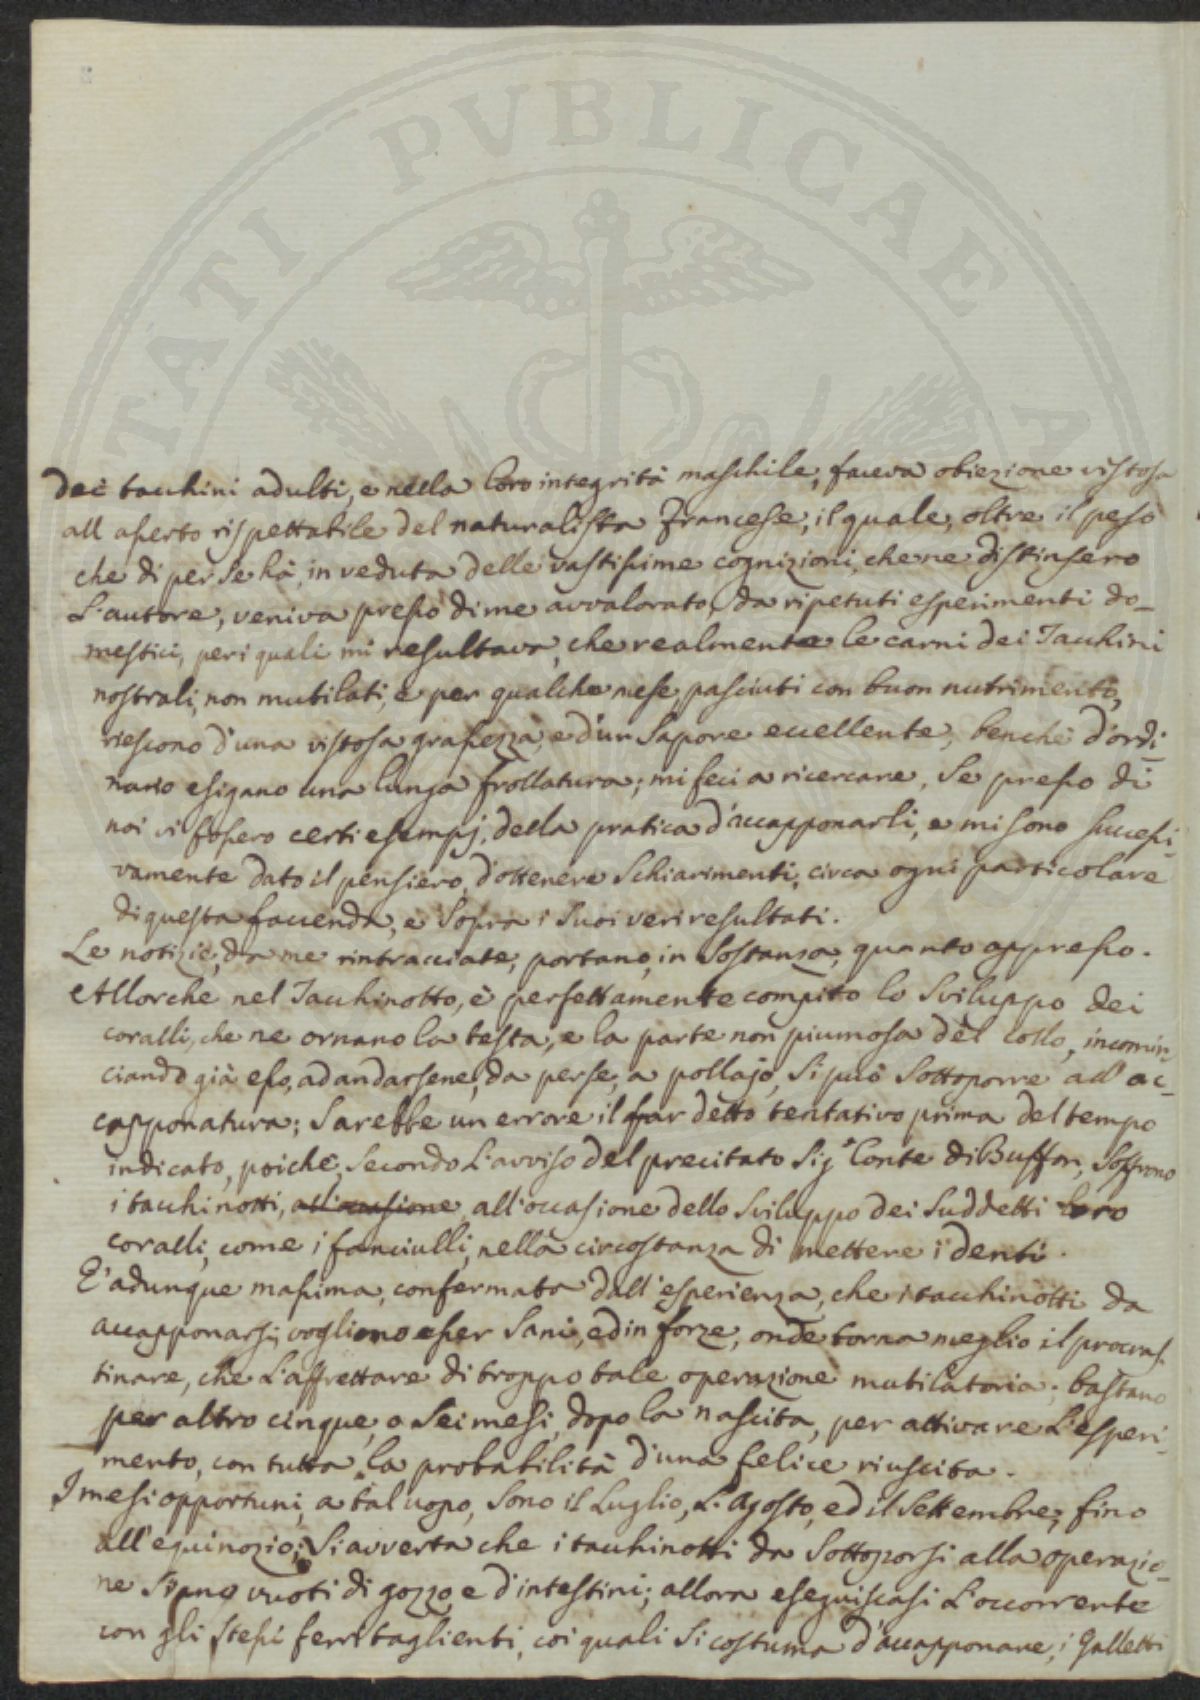 TATI PVBLICAE A
dei tacchini adulti, e nella loro integrità maschile, faceva obiezione vistosa
all asserto rispettabile del naturalista Francese, il quale, oltre il peso
che di per se hà, in veduta delle vastissime cognizioni, che ne distinsero
L'autore, veniva presso di me avvalorato, da ripetuti esperimenti do-
mestici, per i quali mi resultava, che realmente le carni dei Tacchini
nostrali, non mutilati, e per qualche mese, pasciuti con buon nutrimento,
riescono d'una vistosa grassezza, e d'un Sapore eccellente, benchè d'ordi-
nario esigano una lunga frollatura; mi feci a ricercare, Se presso di
noi vi fossero certi esempj, della pratica d'accapponarli, e mi sono successi-
vamente dato il pensiero, d'ottenere Schiarimenti, circa ogni particolare
di questa faccenda, e Sopra i Suoi veri resultati.
Le notizie, da me rintracciate, portano, in Sostanza, quanto appresso.
Allorche nel Tacchinotto, è perfettamente compito lo Sviluppo dei
coralli, che ne ornano la testa, e la parte non piumosa del collo, incomin-
ciando già esso, ad andarsene, da per se, a pollajo, Si può Sottoporre all' ac-
capponatura; Sarebbe un errore il far detto tentativo prima del tempo
indicato, poichè, Secondo L'avviso del precitato Sig.r Conte di Buffon, Soffrono
i tacchinotti, all'occasione, all'occasione dello Sviluppo dei Suddetti loro
coralli, come i fanciulli, nella circostanza di mettere i denti.
E' adunque massima, confermata dall'esperienza, che i tacchinotti da
accapponarsi, vogliono esser Sani, ed in forze, onde torna meglio il procras-
tinare, che L'affrettare di troppo tale operazione mutilatoria; bastano
per altro cinque, o Sei mesi, dopo la nascita, per attivare L'esperi-
mento, con tutta la probabilità d'una felice riuscita.
I mesi opportuni, a tal uopo, Sono il Luglio, L'Agosto, ed il Settembre, fino
all'equinozio; Si avverta che i tacchinotti da Sottoporsi alla operazio-
ne Siano vuoti di gozzo, e d'intestini; allora eseguiscasi L'occorrente
con gli stessi ferri taglienti, coi quali Si costuma d'accapponare, i Galletti